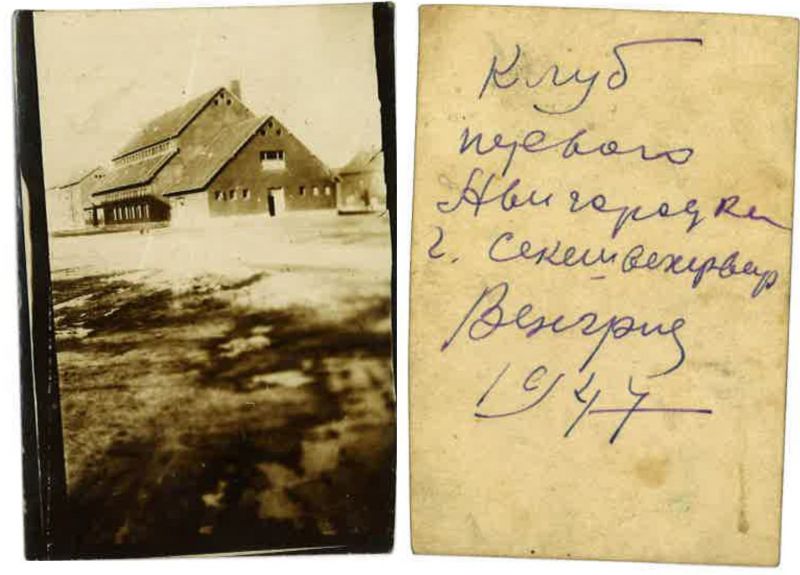 Клуб
первого
Авигородка
г. Секешвехервар
Венгрия
1947